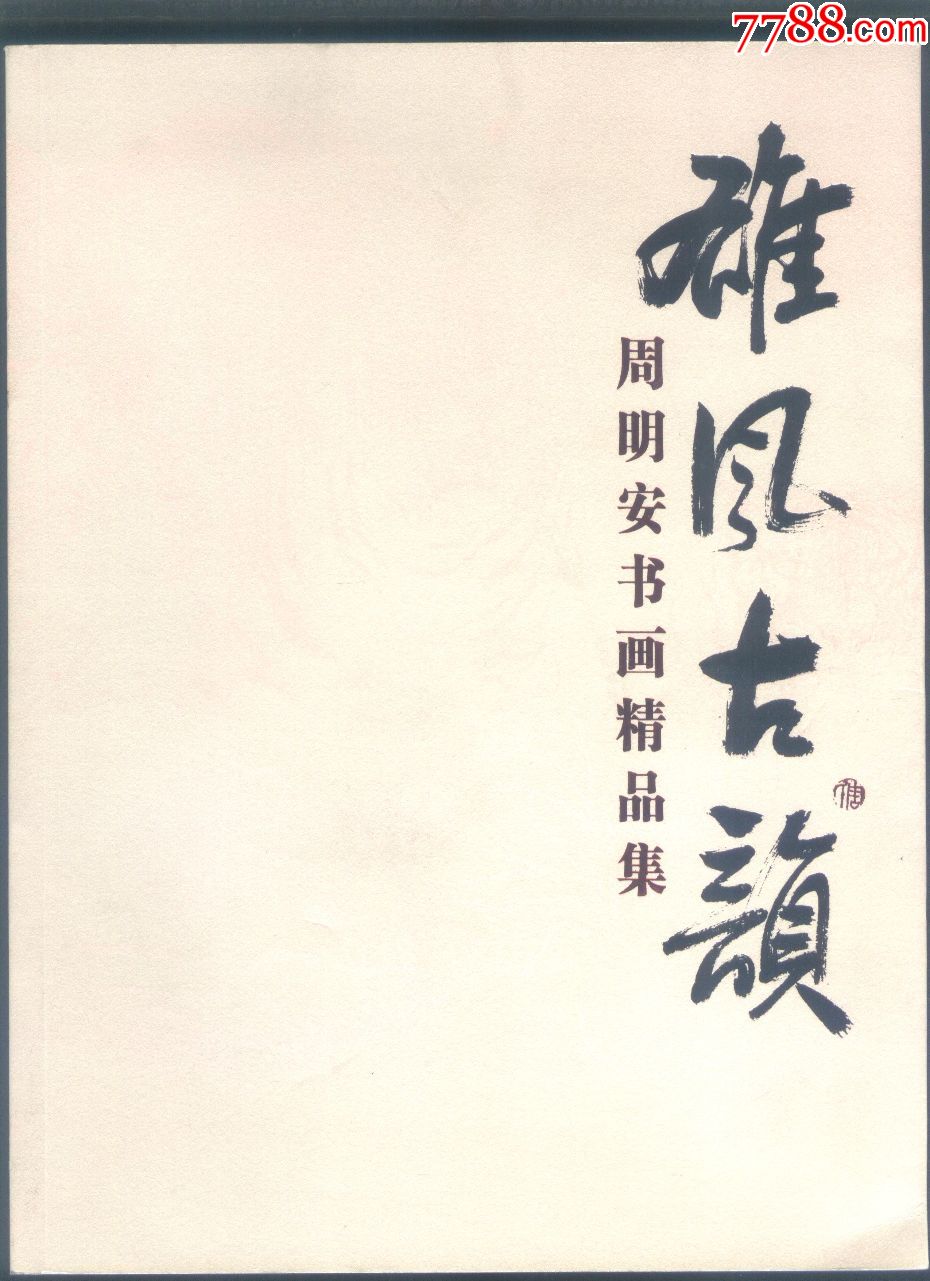 7788.com
雄风古韻
周明安书画精品集